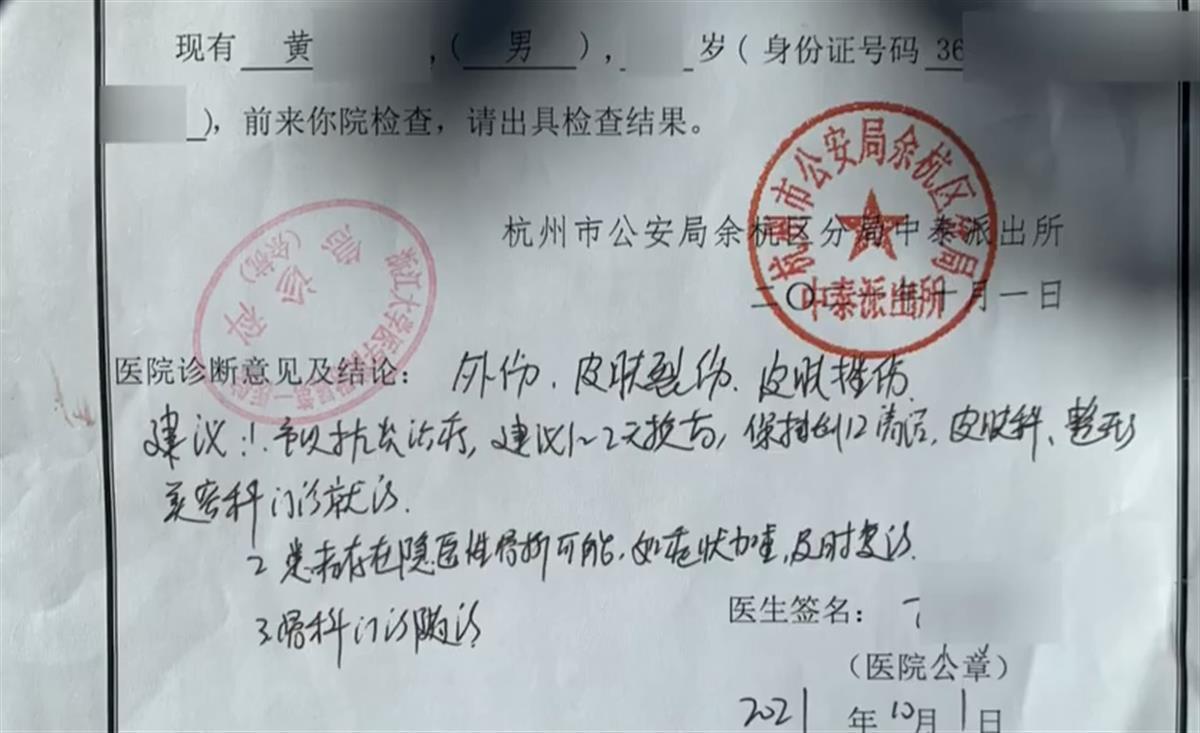 现有 黄 ,( 男 ), 岁(身份证号码 36
),前来你院检查,请出具检查结果。
杭州市公安局余杭区分局
中泰派出所
杭州市公安局余杭区分局中泰派出所
二〇二一年十月一日
浙江大学医学院附属第一医院
急诊科
(余杭)
医院诊断意见及结论: 外伤、皮肤裂伤、皮肤挫伤
建议:1.予以抗炎治疗,建议1~2天换药,保持创口清洁,皮肤科、整形
美容科门诊就诊.
2 患者存在隐匿性骨折可能,如症状加重,及时复诊.
3.骨科门诊随诊
医生签名:
(医院公章)
2021 年 10 月 1 日